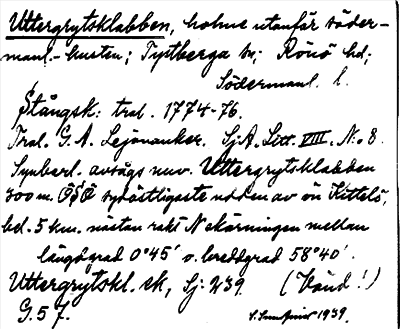 Uttergrytsklabben, holme utanför söder-
manl.-kusten; Tystberga sn; Rönö hd;
Södermanl. l.
Stångsk: tral. 1774-76.
Tral. G.A. Lejonanker. Sj.A. Litt. VIII. No 8.
Synbarl. avsågs nuv. Uttergrytsklabben
300 m. OSO sydöstligaste udden av ön Kittelö,
bel. 5 km. nästan rakt N skärningen mellan
längdgrad 0°45' o. breddgrad 58°40'.
Uttergrytskl. ek, Sj: 239. (Vänd!)
G. 57. 1939.